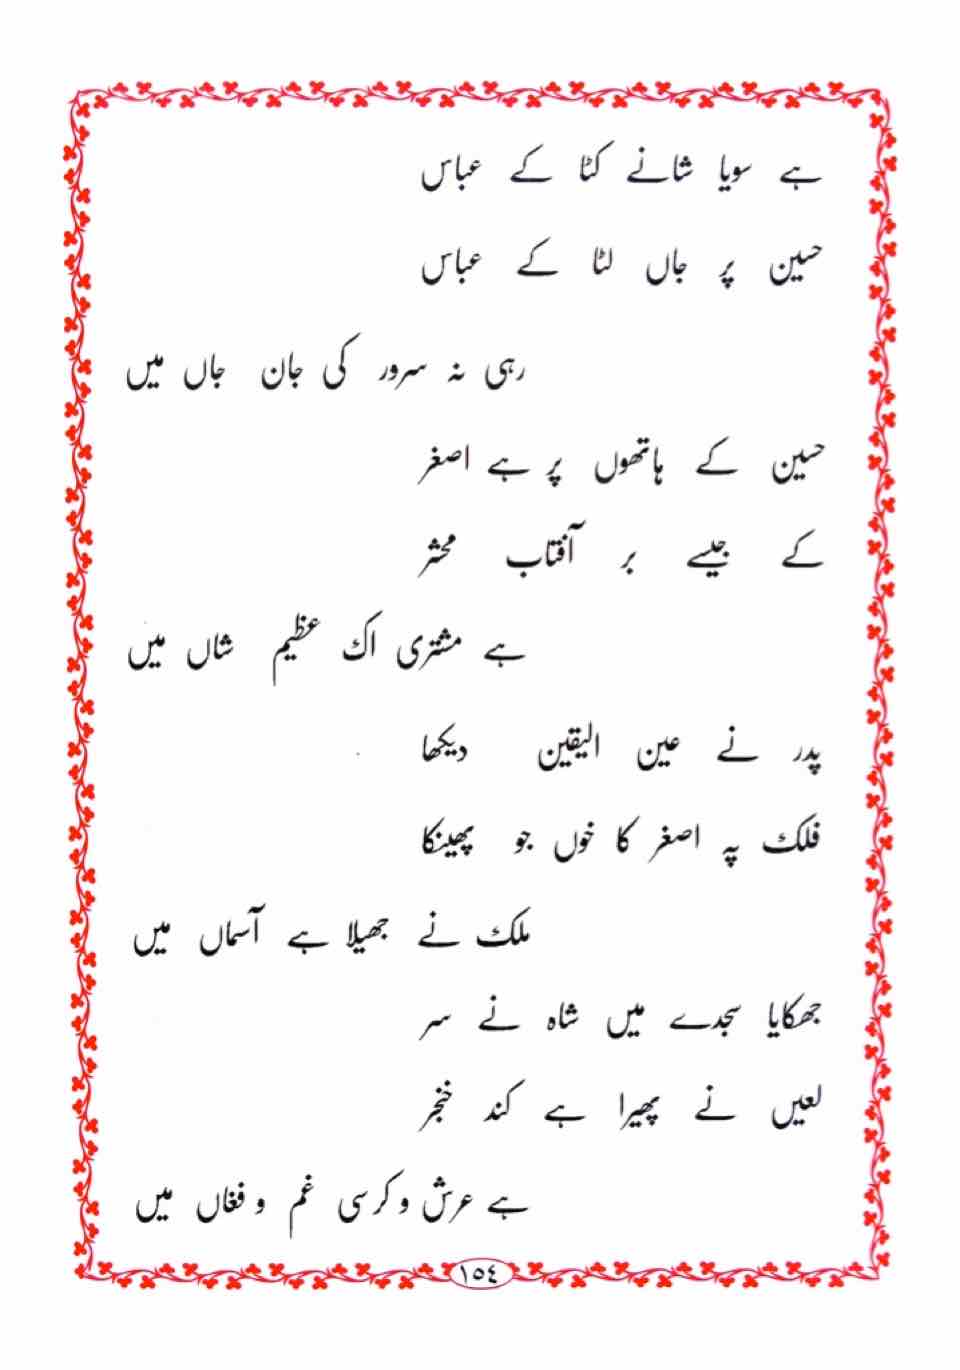 ہے سویا شانے کٹا کے عباس
حسین پر جاں لٹا کے عباس
رہی نہ سرور کی جان جاں میں
حسین کے ہاتھوں پر ہے اصغر
کے جیسے بر آفتاب محشر
ہے مشتری اک عظیم شاں میں
پدر نے عین الیقین دیکھا
فلک پہ اصغر کا خوں جو پھینکا
ملک نے جھیلا ہے آسماں میں
جھکایا سجدے میں شاہ نے سر
لعیں نے پھیرا ہے کند خنجر
ہے عرش و کرسی غم و فغاں میں
١٥٤